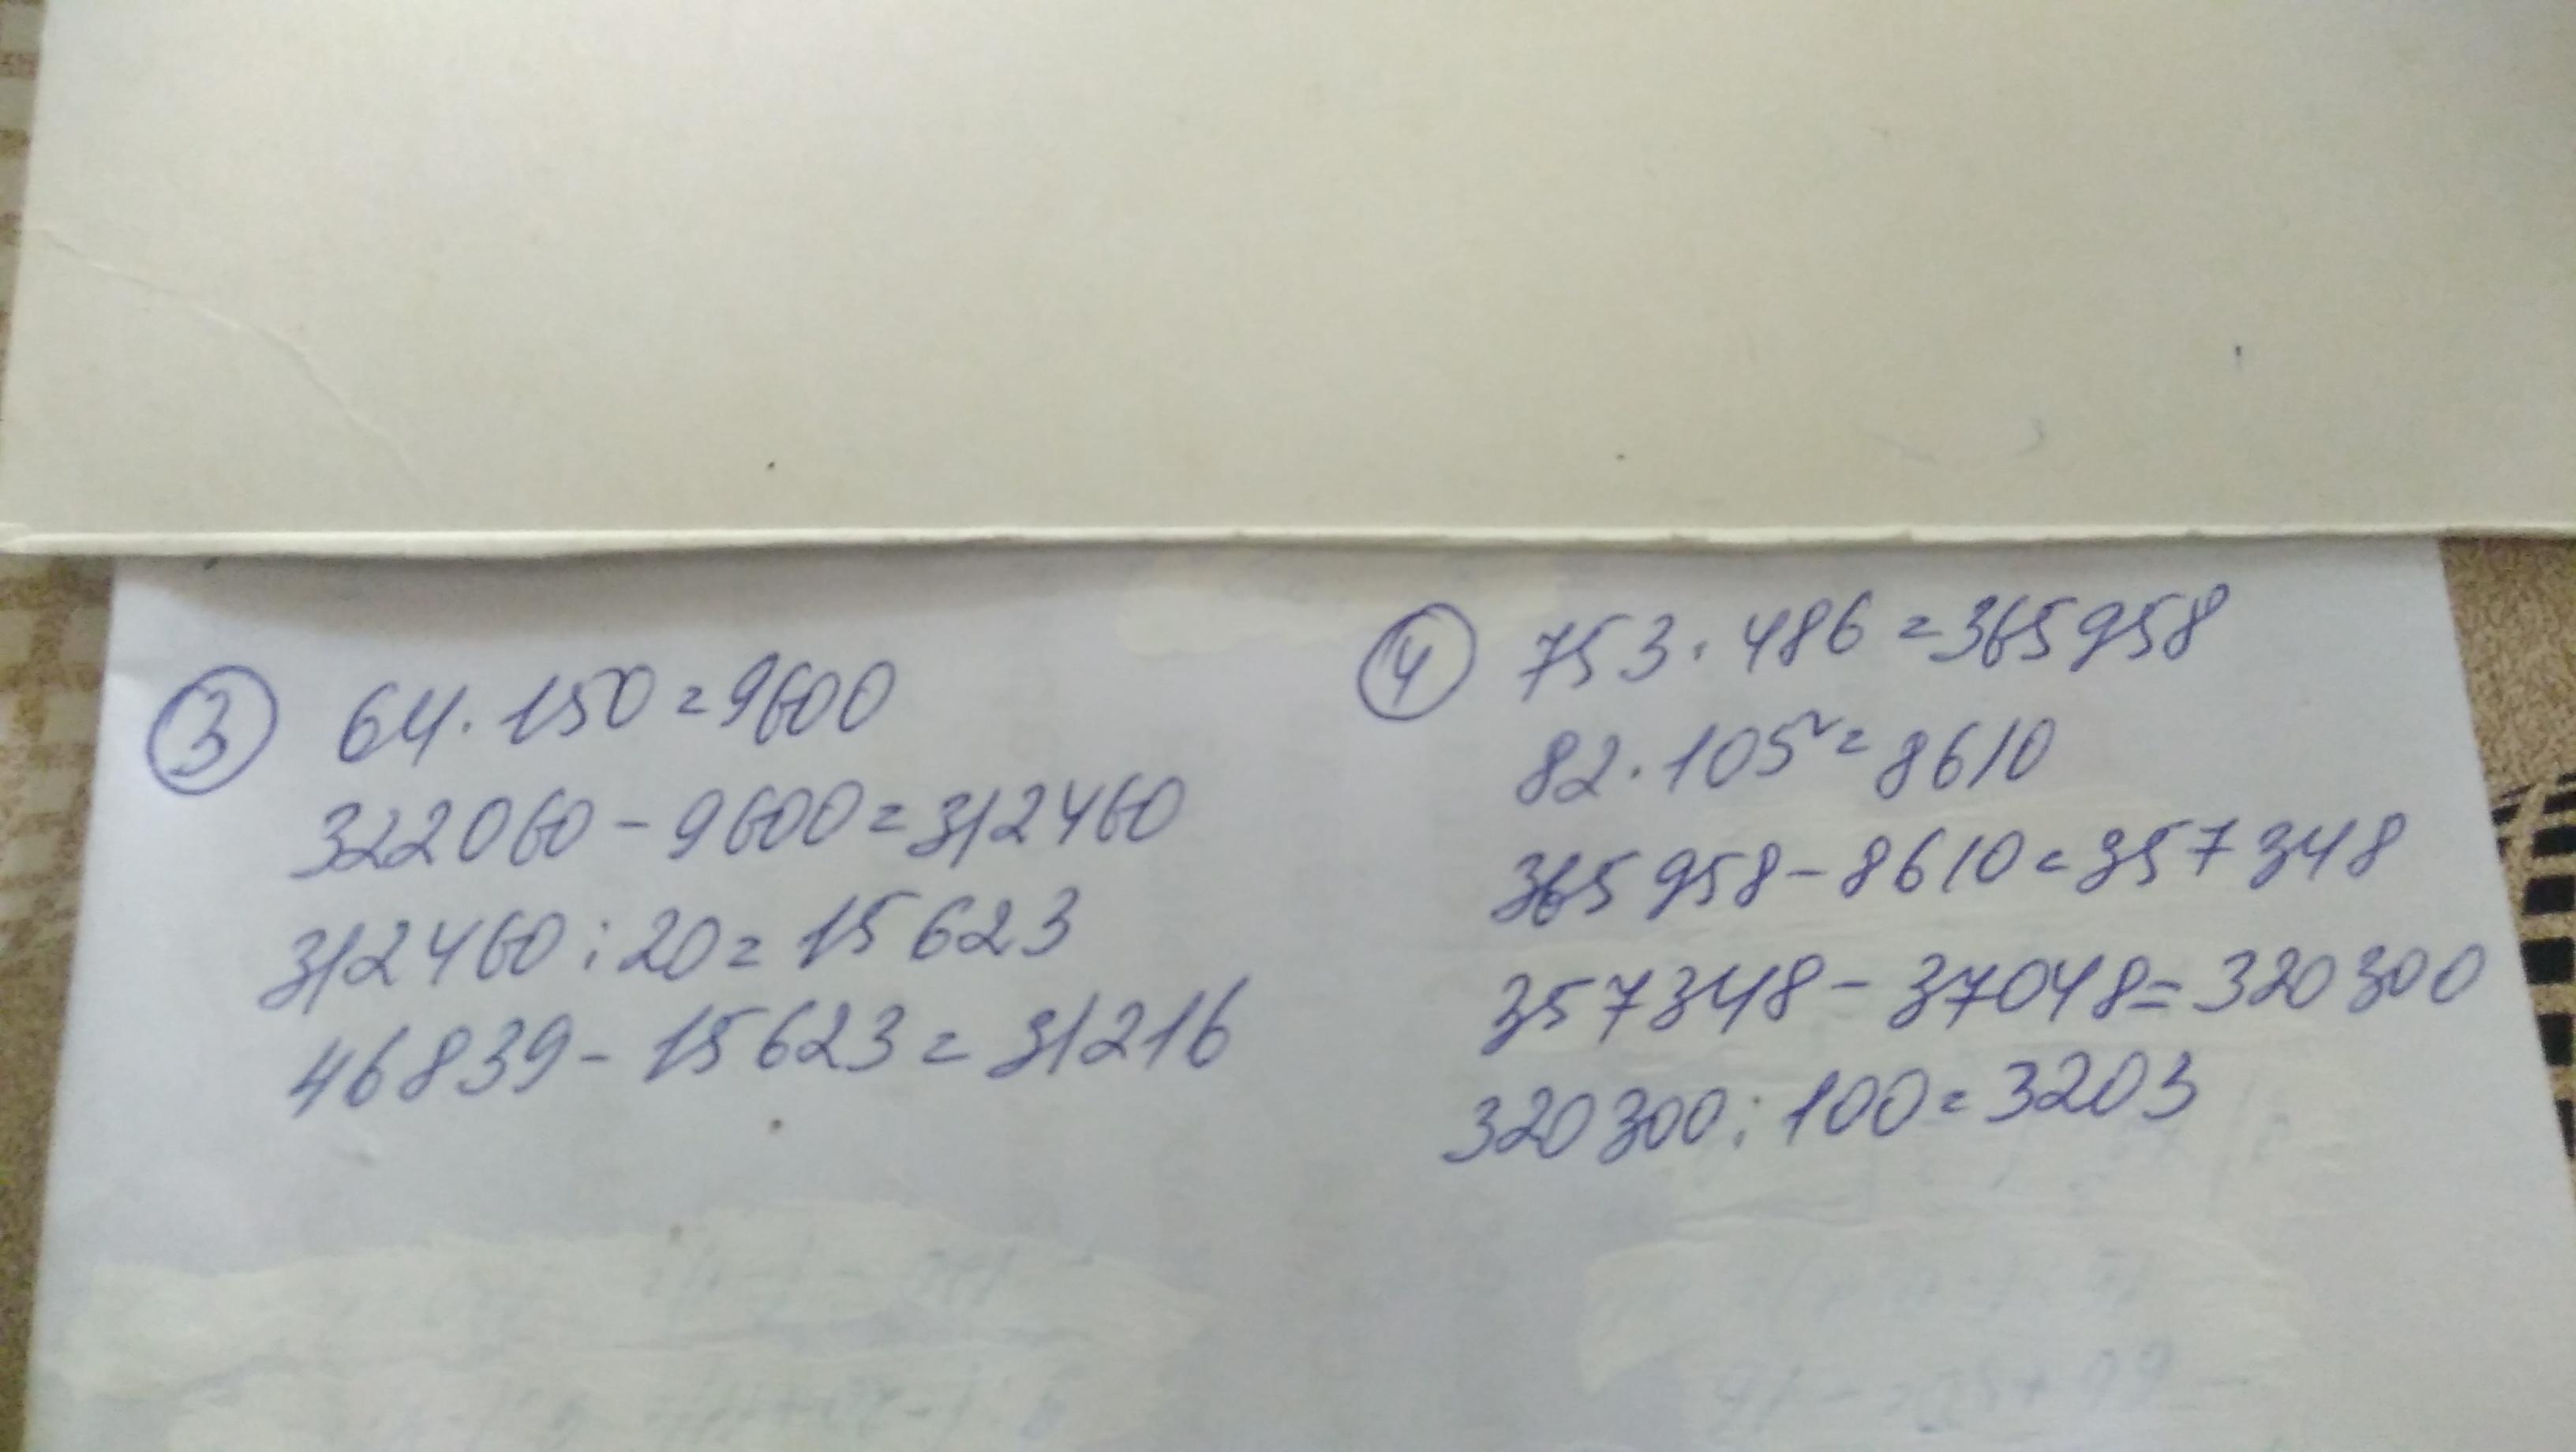 ③ 64·150=9600
322060-9600=312460
312460:20=15623
46839-15623=31216
④ 753·486=365958
82·105=8610
365958-8610=357348
357348-37048=320300
320300:100=3203